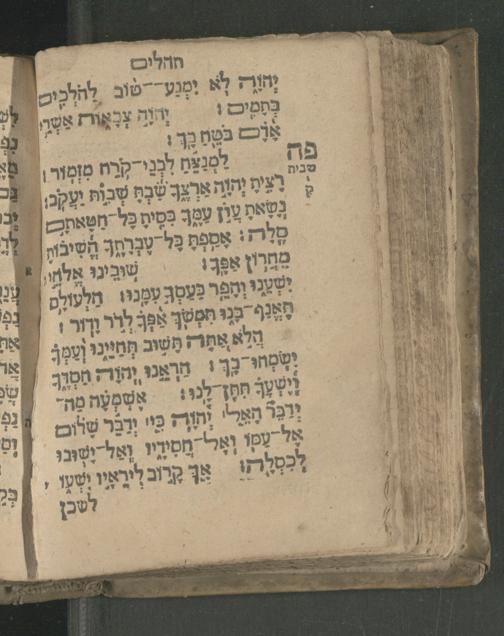 תהלים
יְהוָֹה לֹא יִמְנַע־טוֹב לַהֹלְכִים
בְּתָמִים : יְהוָֹה צְבָאוֹת אַשְׁרֵי
אָדָם בֹּטֵחַ בָּךְ :
פה
לַמְנַצֵּחַ לִבְנֵי־קֹרַח מִזְמוֹר :
שבית
ק
רָצִיתָ יְהוָֹה אַרְצֶךָ שַׁבְתָּ שְׁבוּת יַעֲקֹב :
נָשָׂאתָ עֲוֹן עַמֶּךָ כִּסִּיתָ כָל־חַטָּאתָם
סֶלָה : אָסַפְתָּ כָל־עֶבְרָתֶךָ הֱשִׁיבוֹתָ
מֵחֲרוֹן אַפֶּךָ : שׁוּבֵינוּ אֱלֹהֵי
יִשְׁעֵנוּ וְהָפֵר כַּעַסְךָ עִמָּנוּ : הַלְעוֹלָם
תֶּאֱנַף־בָּנוּ תִּמְשֹׁךְ אַפְּךָ לְדֹר וָדוֹר :
הֲלֹא אַתָּה תָּשׁוּב תְּחַיֵּינוּ וְעַמְּךָ
יִשְׂמְחוּ־בָךְ : הַרְאֵנוּ יְהוָֹה חַסְדֶּךָ
וְיֶשְׁעֲךָ תִּתֶּן־לָנוּ : אֶשְׁמְעָה מַה־
יְדַבֵּר הָאֵל יְהוָֹה כִּי יְדַבֵּר שָׁלוֹם
אֶל־עַמּוֹ וְאֶל־חֲסִידָיו וְאַל־יָשׁוּבוּ
לְכִסְלָה : אַךְ קָרוֹב לִירֵאָיו יִשְׁעוֹ
לשכן